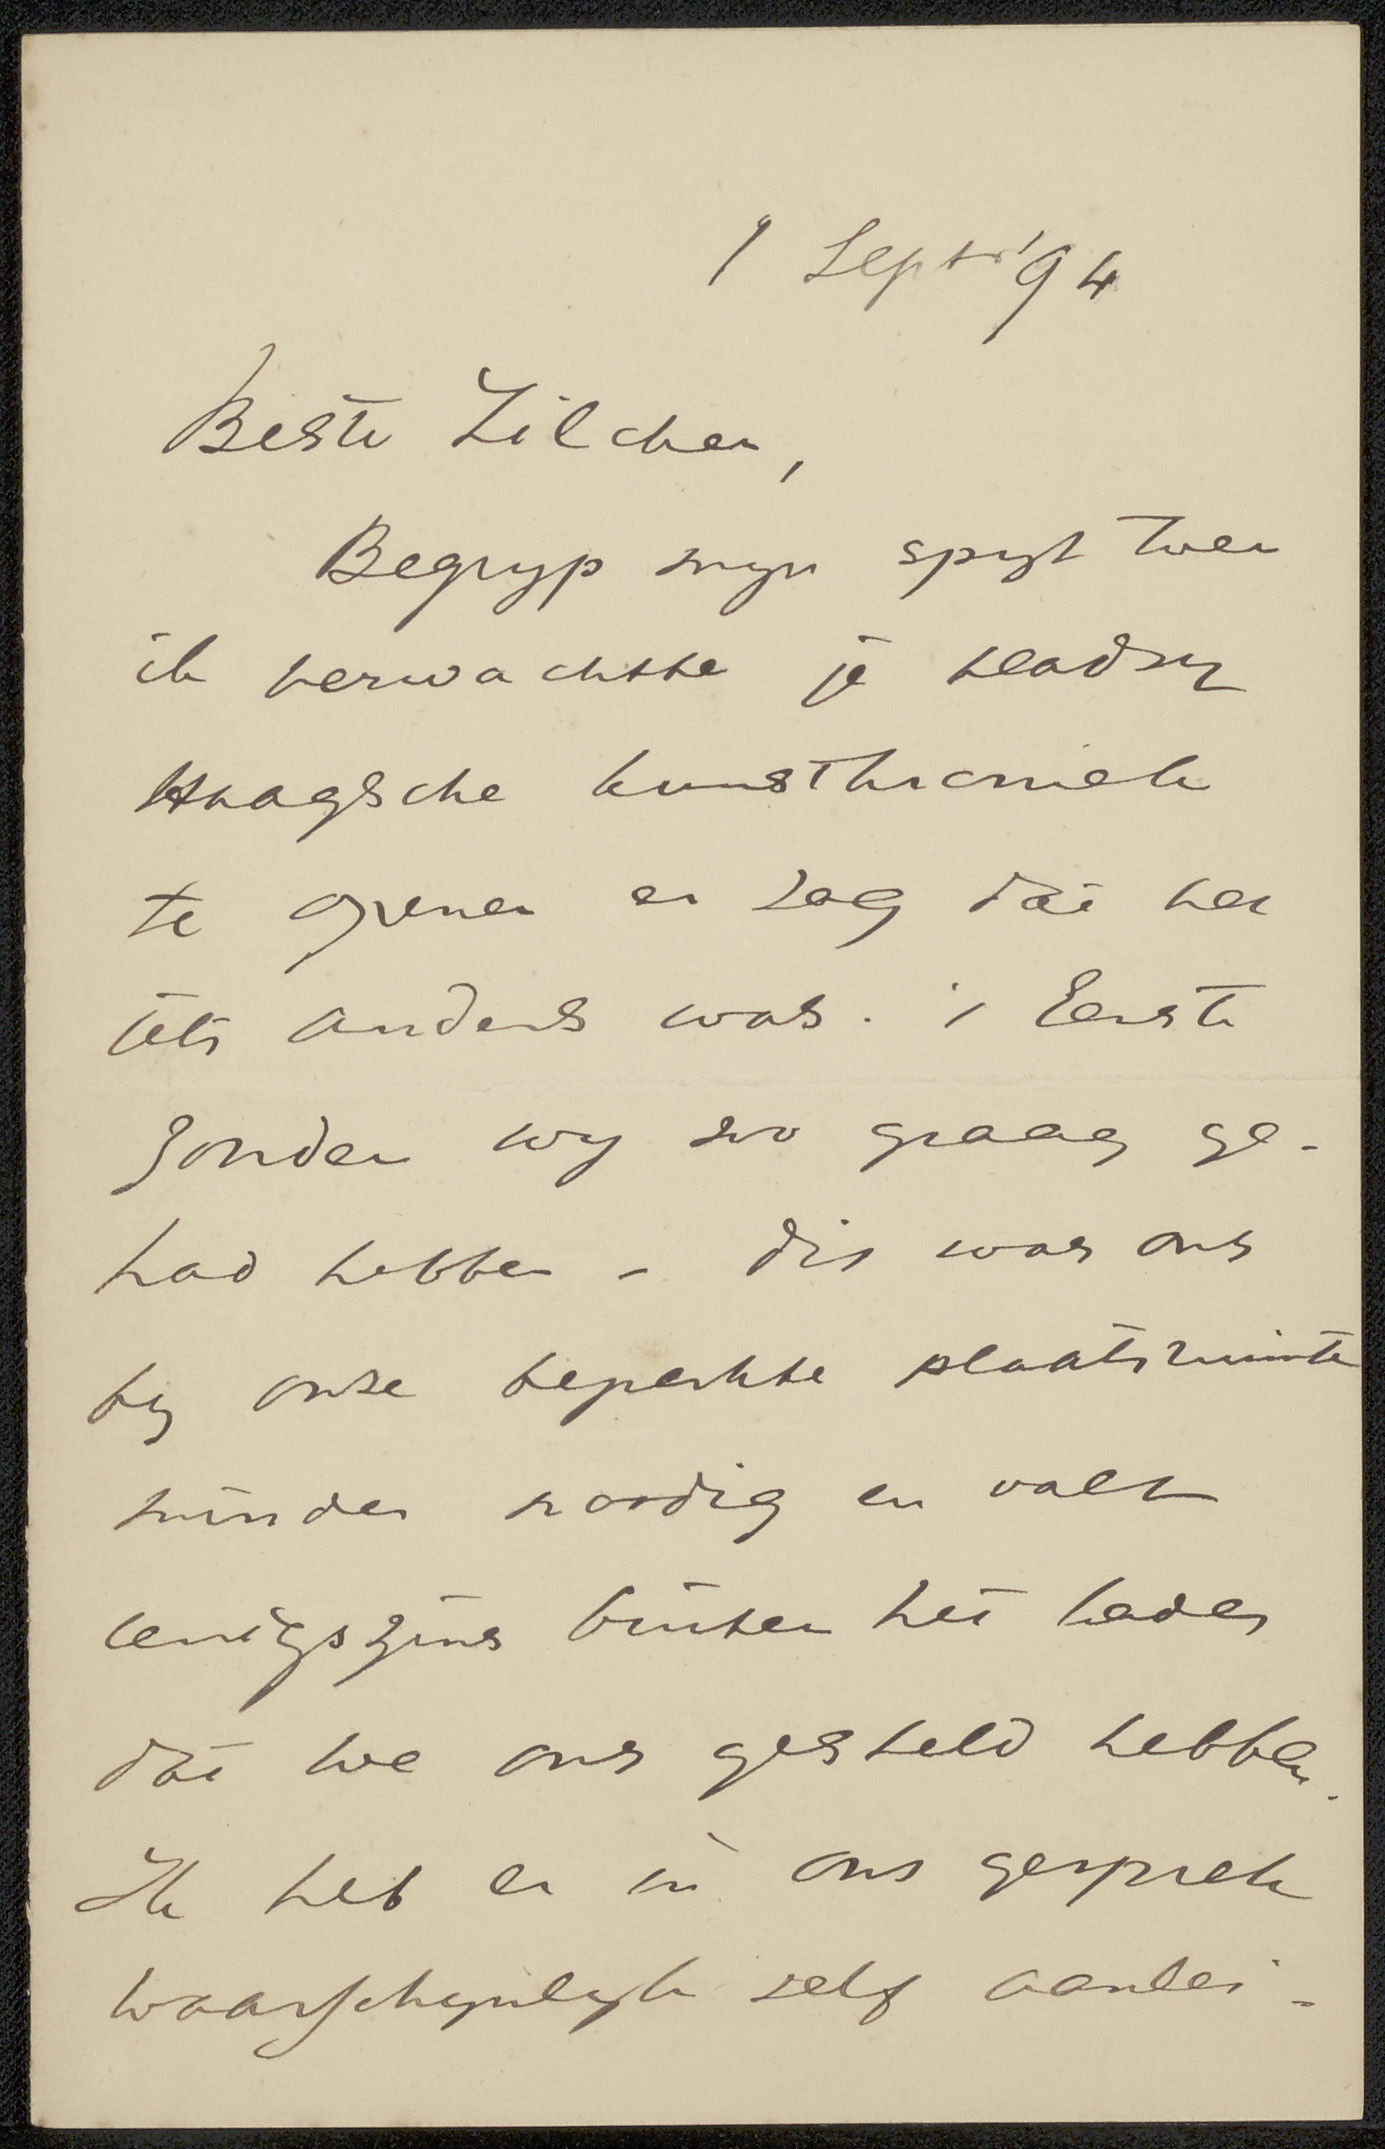 1 Septr '94
Beste Zilcken,
Begryp myn spyt toen
ik verwachtte je
Haagsche kunstkroniek
te openen en zag dat het
iets anders was. 't Eerste
zouden wy zoo graag ge-
had hebben - dit was ons
by onze beperkte plaatsruimte
minder noodig en valt
eenigszins buiten het kader
dat we ons gesteld hebben.
Ik heb er in ons gesprek
waarschynlyk zelf aanlei-